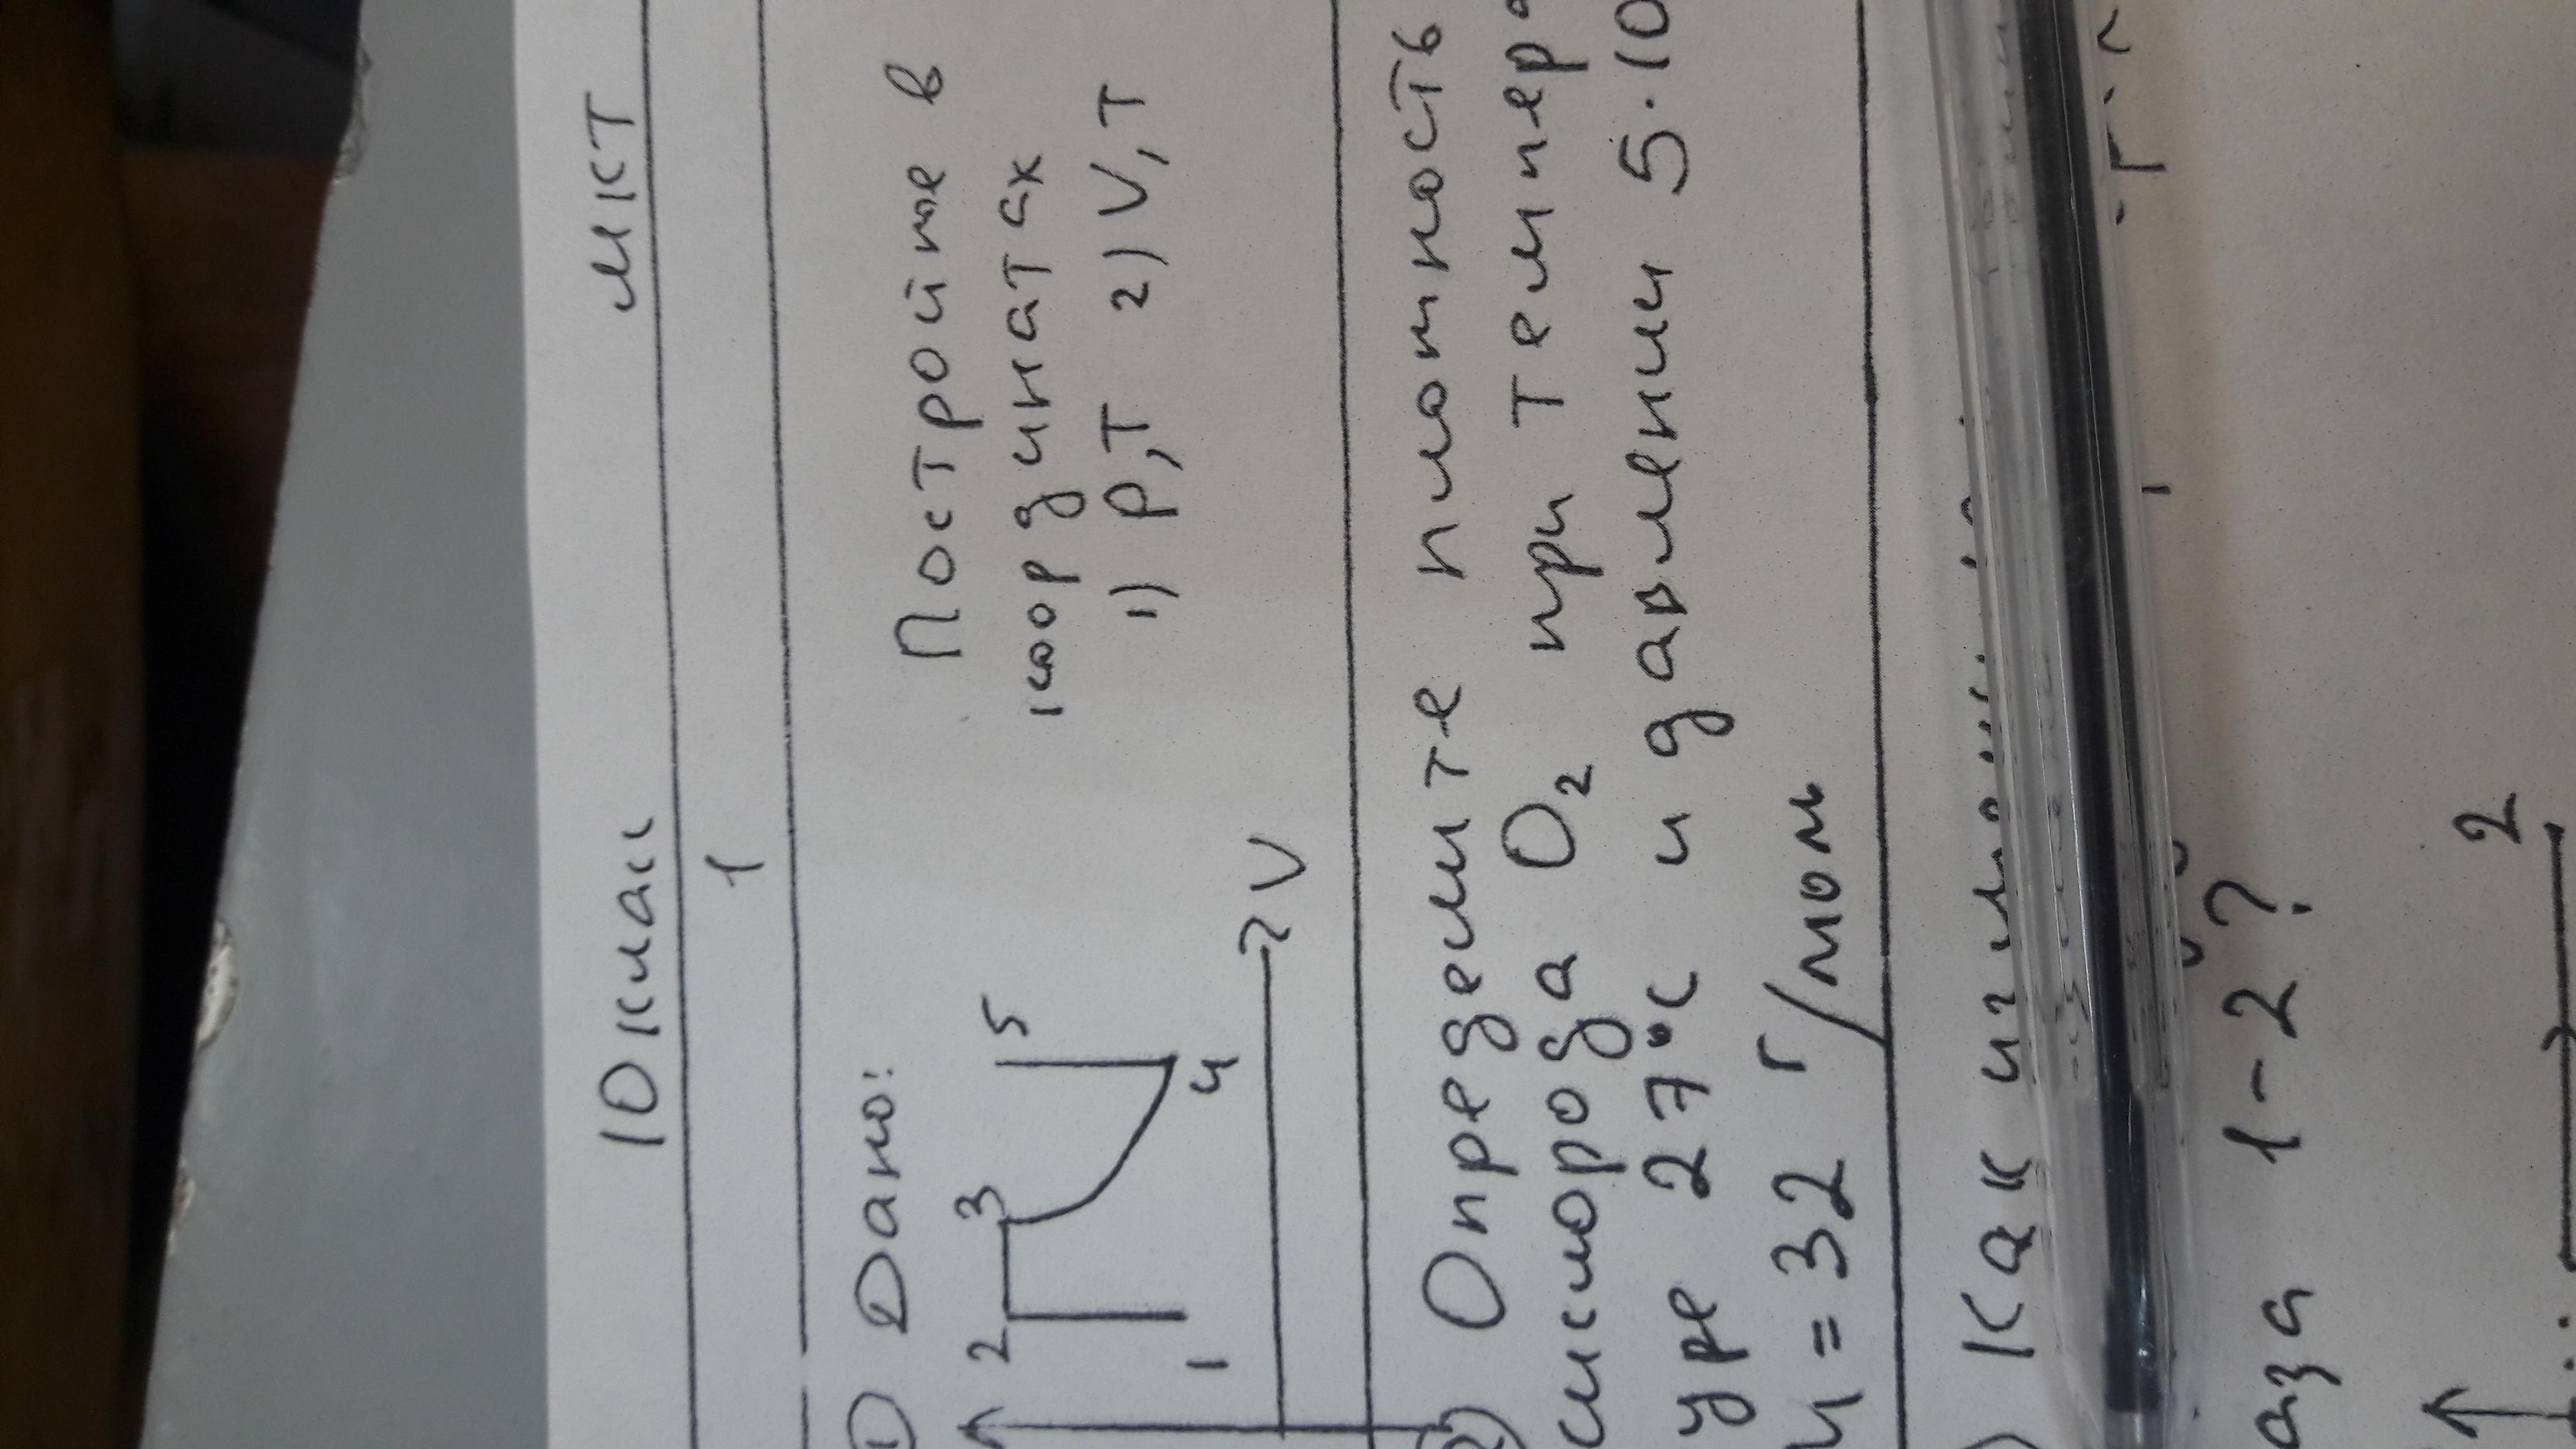 10 класс МКТ
1
1) Дано: Постройте в
координатах
1) P,T 2) V,T
2 3 5
1 4
V
2) Определите плотность
кислорода O₂ при темпера
туре 27°С и давлении 5·10
М = 32 г/моль
Как
аза 1-2?
2